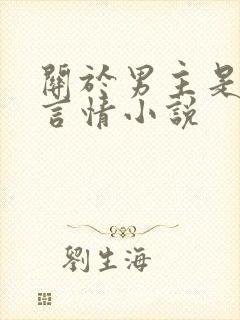 關於男主是
言情小說
劉生海